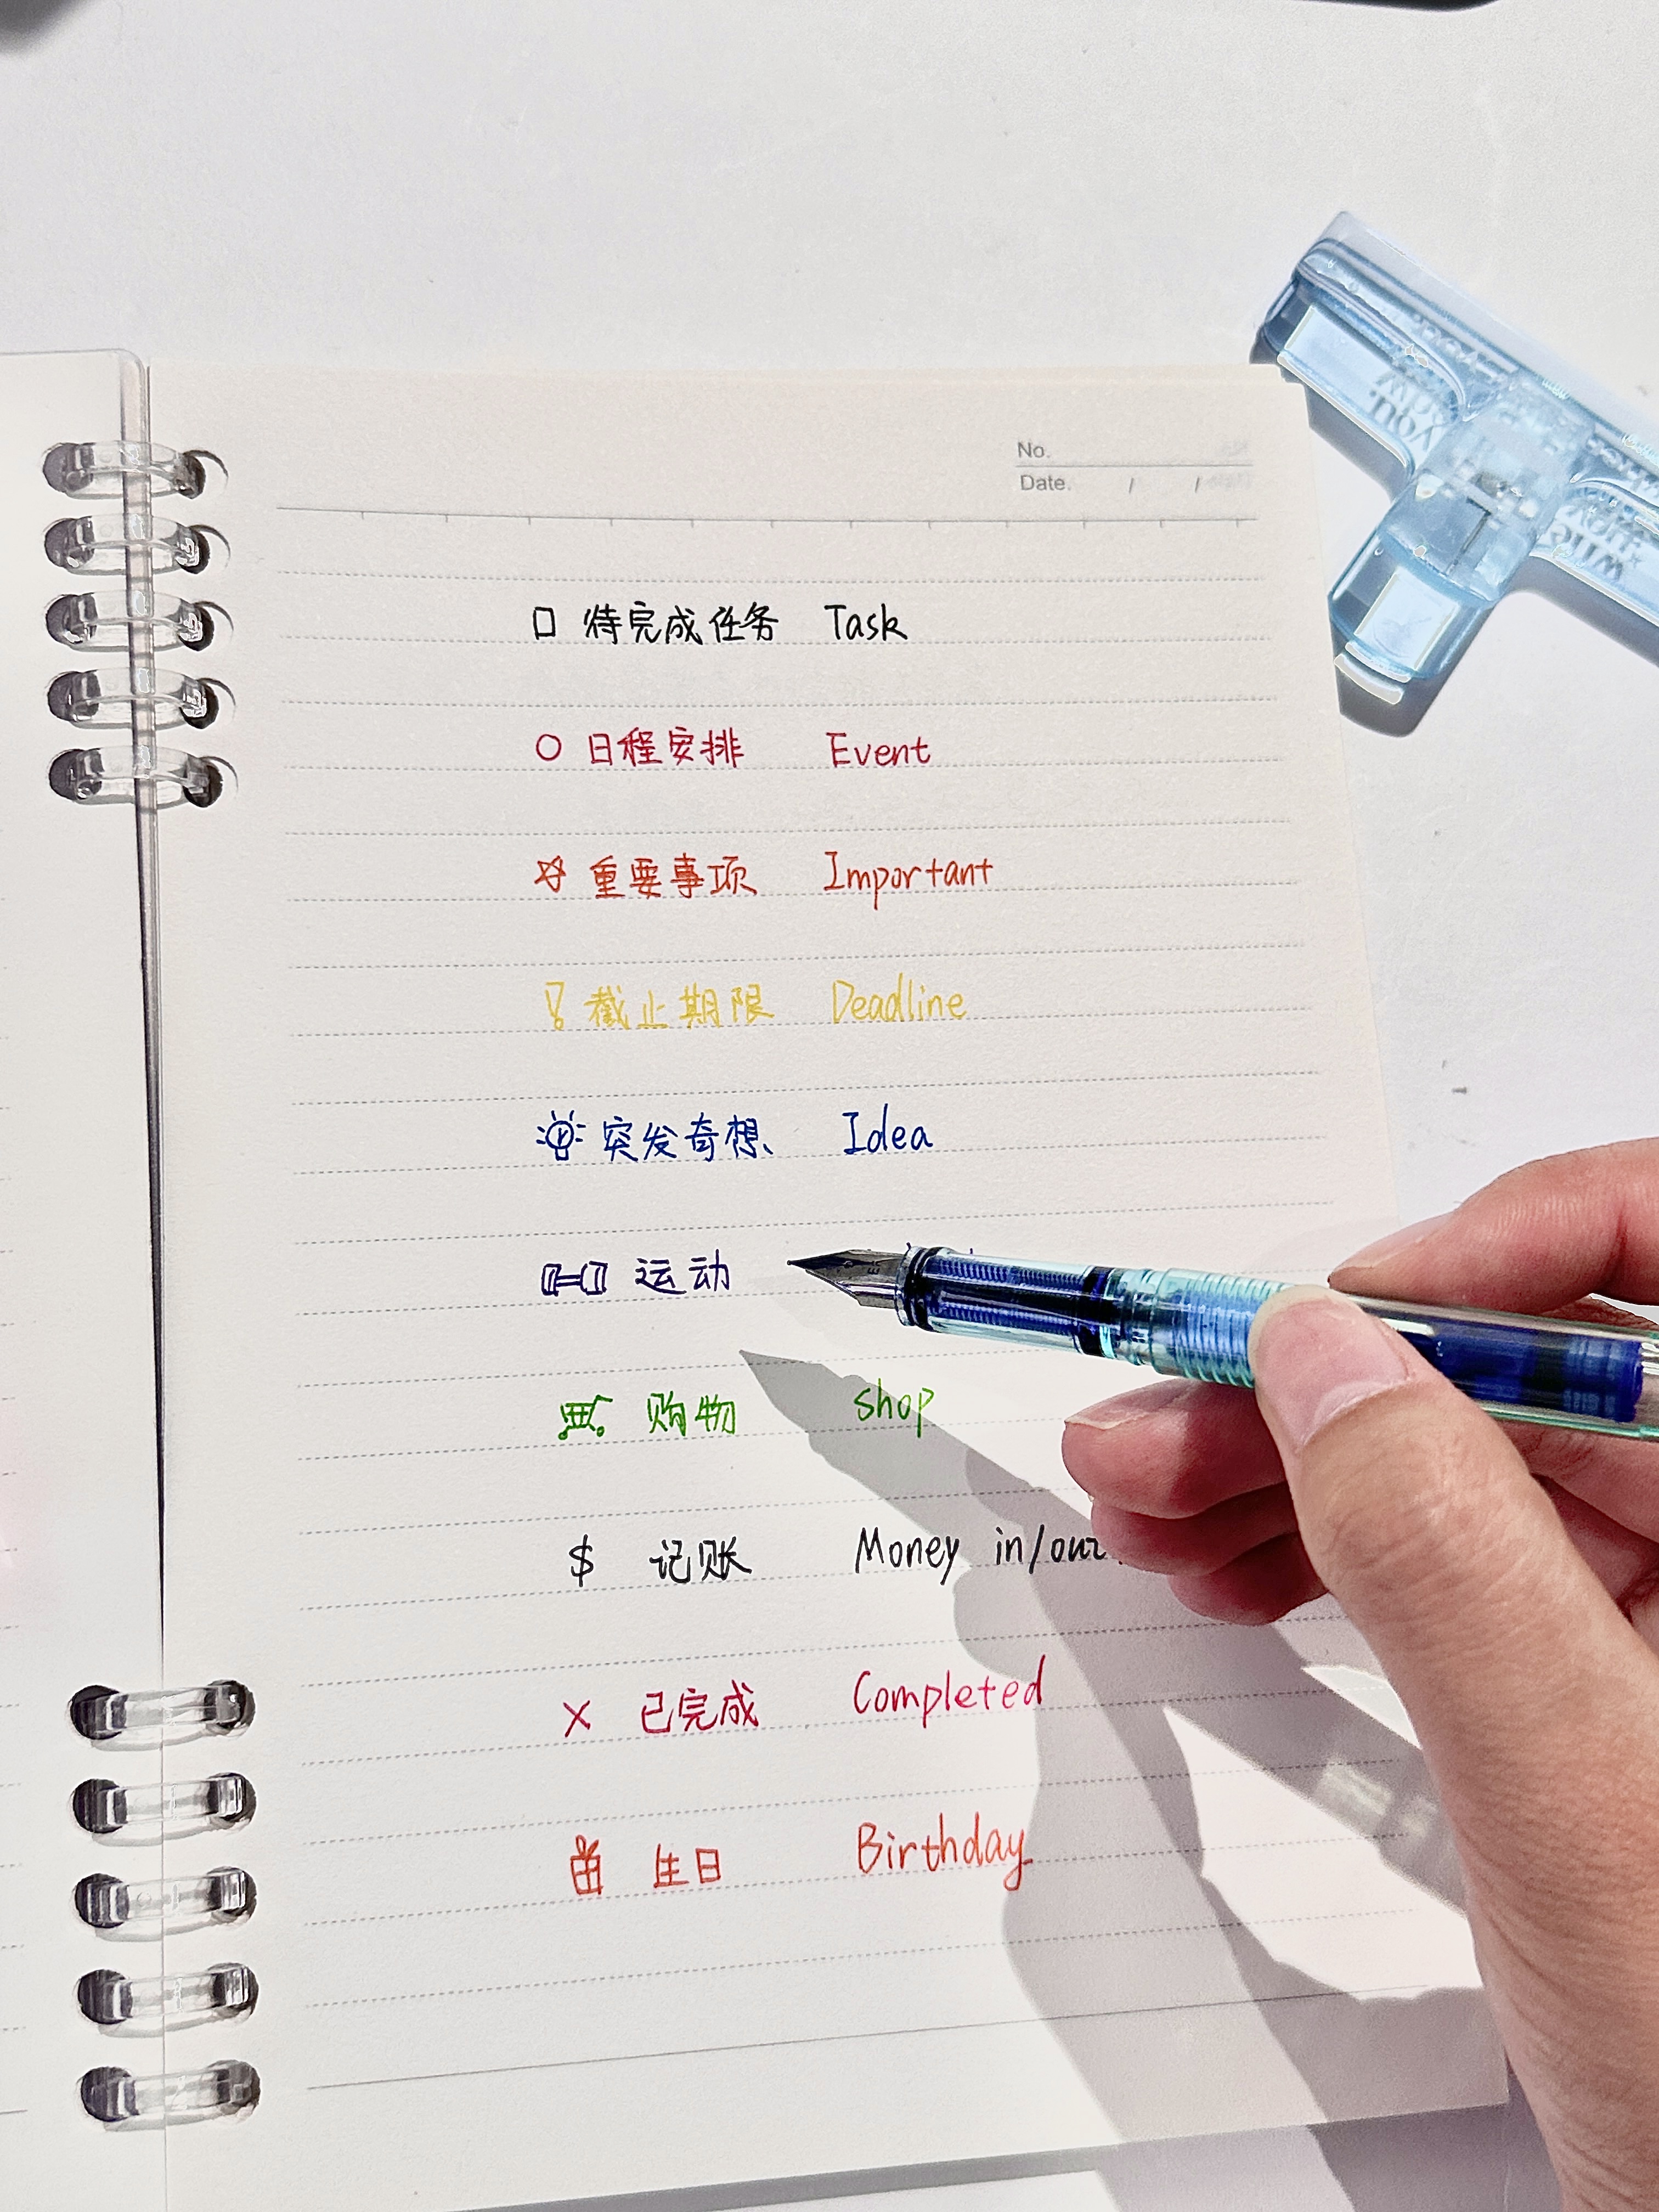 No.
Date. / /
□ 待完成任务 Task
○ 日程安排 Event
☆ 重要事项 Important
! 截止期限 Deadline
突发奇想 Idea
运动
购物 shop
$ 记账 Money in/out
× 已完成 Completed
生日 Birthday